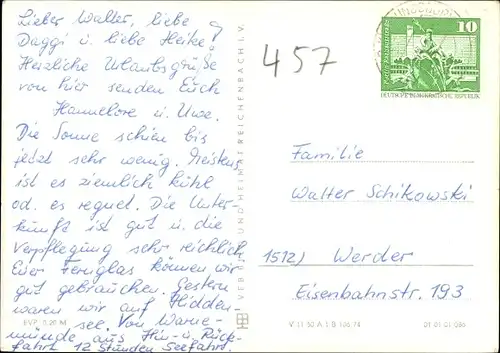 Lieber Walter, liebe
Daggi u. liebe Heike!
Herzliche Urlaubsgrüße
von hier senden Euch
Hannelore u. Uwe.
Die Sonne schien bis
jetzt sehr wenig. Meistens
ist es ziemlich kühl
od. es regnet. Die Unter-
kunft ist gut u. die
Verpflegung sehr reichlich.
Euer Fernglas können wir
gut gebrauchen. Gestern
waren wir auf Hidden-
see. Von Warne-
münde aus Hin- u. Rück-
fahrt 12 Stunden Seefahrt.
EVP 0,20 M
VERLAG BILD UND HEIMAT REICHENBACH I. V.
457
10
DEUTSCHE DEMOKRATISCHE REPUBLIK
Familie
Walter Schikowski
1512) Werder
Eisenbahnstr. 193
01 01 01 086